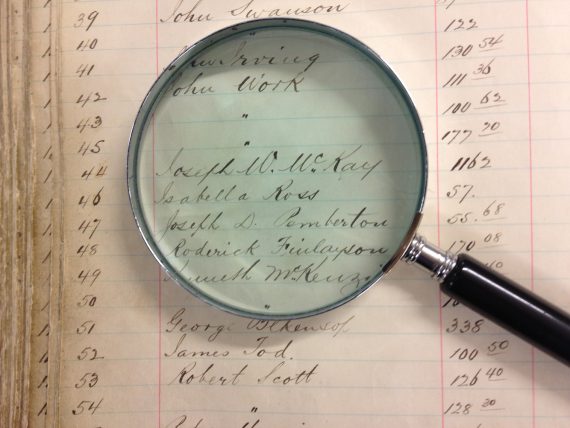 39 John Swanson 122
40 " 130 54
41 Irving 111 36
42 John Work 100 62
43 " 177 20
45 "
44 Joseph W. McKay 1162
46 Isabella Ross 57.
47 Joseph D. Pemberton 55. 68
48 Roderick Finlayson 170 08
49 Kenneth McKenzie
50 "
51 George Blenkinsop 338
52 James Tod. 100 50
53 Robert Scott 126 40
54 " 128 30